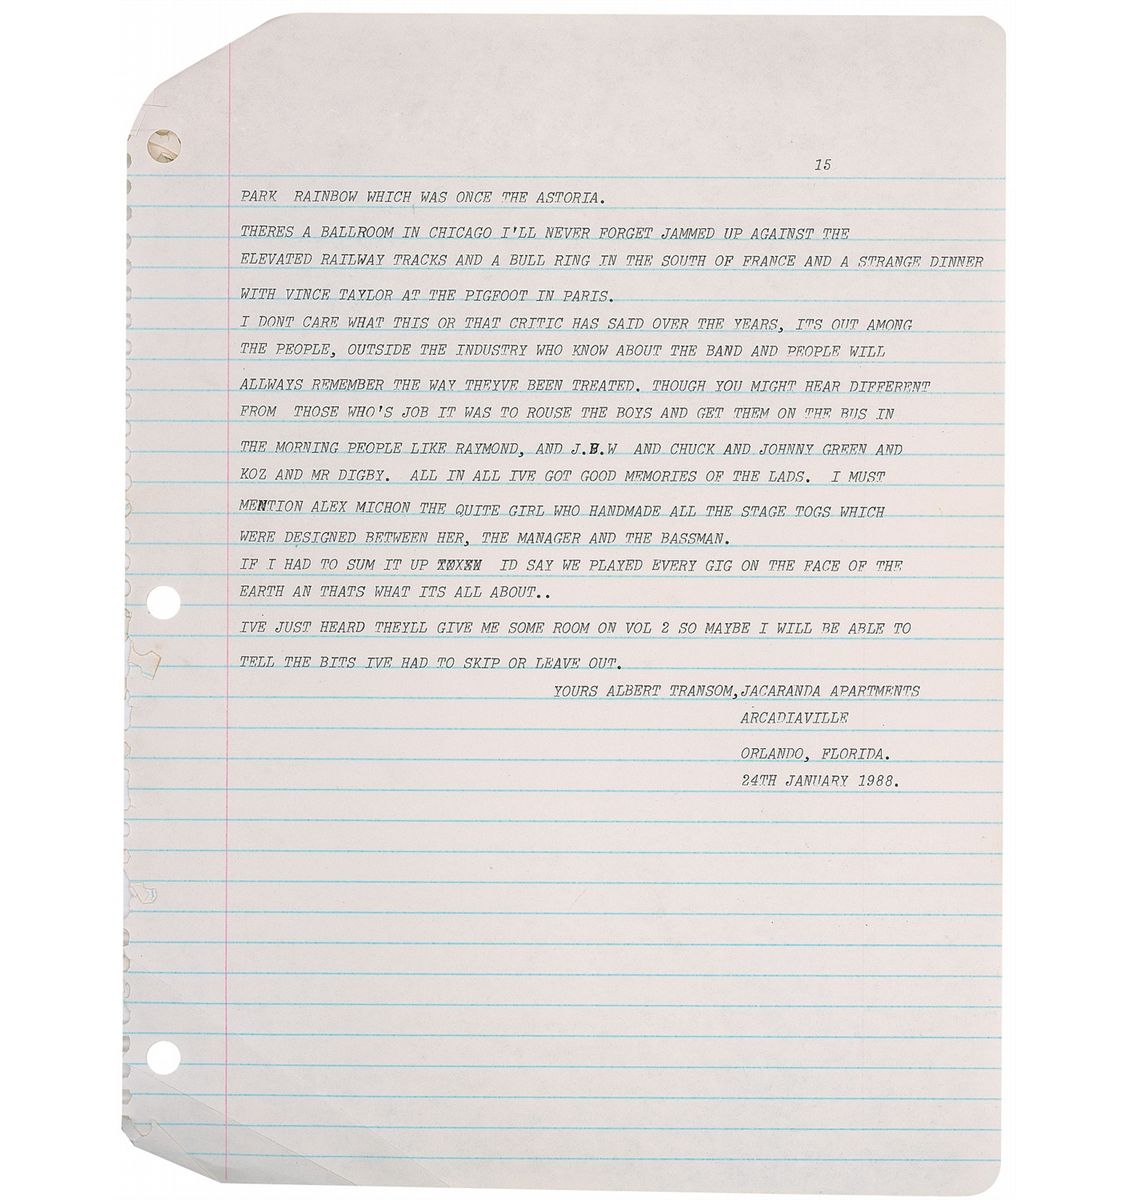 15
PARK  RAINBOW WHICH WAS ONCE THE ASTORIA.
THERES A BALLROOM IN CHICAGO I'LL NEVER FORGET JAMMED UP AGAINST THE
ELEVATED RAILWAY TRACKS AND A BULL RING IN THE SOUTH OF FRANCE AND A STRANGE DINNER
WITH VINCE TAYLOR AT THE PIGFOOT IN PARIS.
I DONT CARE WHAT THIS OR THAT CRITIC HAS SAID OVER THE YEARS, ITS OUT AMONG
THE PEOPLE, OUTSIDE THE INDUSTRY WHO KNOW ABOUT THE BAND AND PEOPLE WILL
ALLWAYS REMEMBER THE WAY THEYVE BEEN TREATED. THOUGH YOU MIGHT HEAR DIFFERENT
FROM  THOSE WHO'S JOB IT WAS TO ROUSE THE BOYS AND GET THEM ON THE BUS IN
THE MORNING PEOPLE LIKE RAYMOND, AND J.B.W  AND CHUCK AND JOHNNY GREEN AND
KOZ AND MR DIGBY.  ALL IN ALL IVE GOT GOOD MEMORIES OF THE LADS.  I MUST
MENTION ALEX MICHON THE QUITE GIRL WHO HANDMADE ALL THE STAGE TOGS WHICH
WERE DESIGNED BETWEEN HER, THE MANAGER AND THE BASSMAN.
IF I HAD TO SUM IT UP  ID SAY WE PLAYED EVERY GIG ON THE FACE OF THE
EARTH AN THATS WHAT ITS ALL ABOUT..
IVE JUST HEARD THEYLL GIVE ME SOME ROOM ON VOL 2 SO MAYBE I WILL BE ABLE TO
TELL THE BITS IVE HAD TO SKIP OR LEAVE OUT.
YOURS ALBERT TRANSOM,JACARANDA APARTMENTS
ARCADIAVILLE
ORLANDO, FLORIDA.
24TH JANUARY 1988.